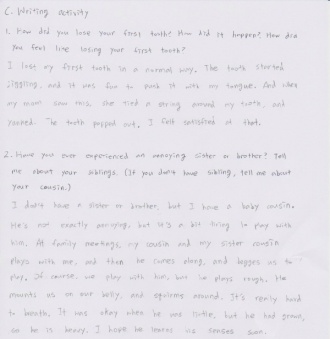 C. Writing activity
1. How did you lose your first tooth? How did it happen? How did
you feel like losing your first tooth?
I lost my first tooth in a normal way. The tooth started
jiggling, and it was fun to push it with my tongue. And when
my mom saw this, she tied a string around my tooth, and
yanked. The tooth popped out. I felt satisfied at that.
2. Have you ever experienced an annoying sister or brother? Tell
me about your siblings. (If you don't have sibling, tell me about
your cousin.)
I don't have a sister or brother, but I have a baby cousin.
He's not exactly annoying, but it's a bit tiring to play with
him. At family meetings, my cousin and my sister cousin
plays with me, and then he comes along, and bugges us to
play. Of course, we play with him, but he plays rough. He
mounts us on our belly, and squirms around. It's really hard
to breath. It was okay when he was little, but he had grown,
so he is heavy. I hope he learns his senses soon.